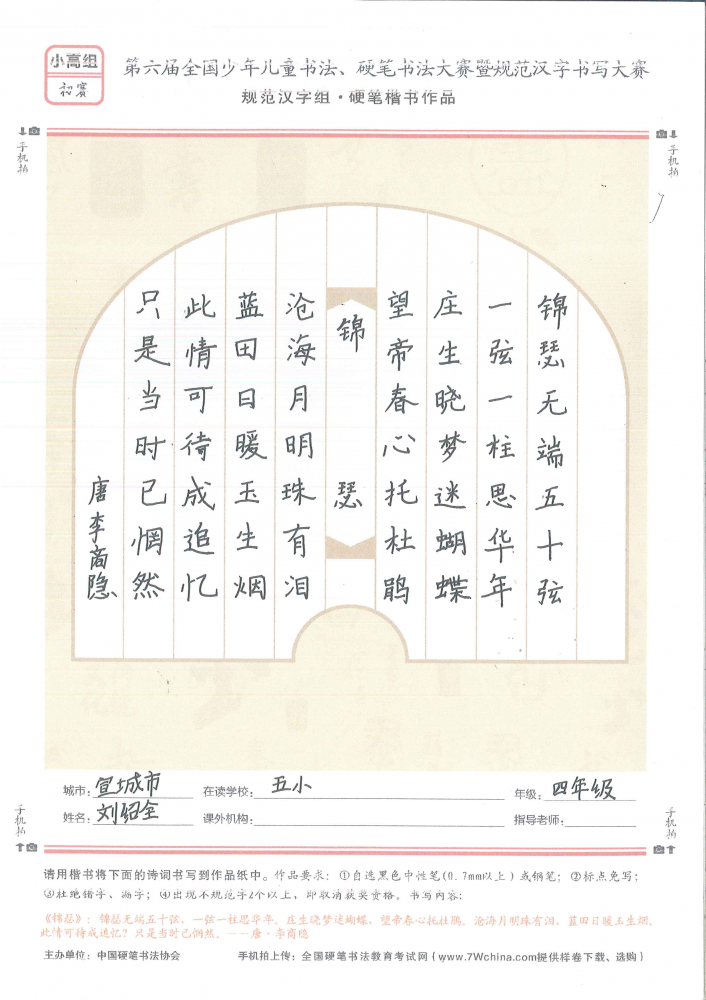 小高组
初赛
第六届全国少年儿童书法、硬笔书法大赛暨规范汉字书写大赛
规范汉字组·硬笔楷书作品
手机拍
手机拍
锦瑟无端五十弦
一弦一柱思华年
庄生晓梦迷蝴蝶
望帝春心托杜鹃
锦瑟
沧海月明珠有泪
蓝田日暖玉生烟
此情可待成追忆
只是当时已惘然
唐李商隐
城市:宣城市
在读学校:五小
年级:四年级
姓名:刘绍全
课外机构:
指导老师:
手机拍
手机拍
请用楷书将下面的诗词书写到作品纸中。作品要求:①自选黑色中性笔(0.7mm以上)或钢笔;②标点免写;
③杜绝错字、漏字;④出现不规范字2个以上,即取消获奖资格。书写内容:
《锦瑟》:锦瑟无端五十弦,一弦一柱思华年。庄生晓梦迷蝴蝶,望帝春心托杜鹃。沧海月明珠有泪,蓝田日暖玉生烟。
此情可待成追忆?只是当时已惘然。——唐·李商隐
主办单位:中国硬笔书法协会
手机拍上传:全国硬笔书法教育考试网(www.7Wchina.com提供样卷下载、选购)